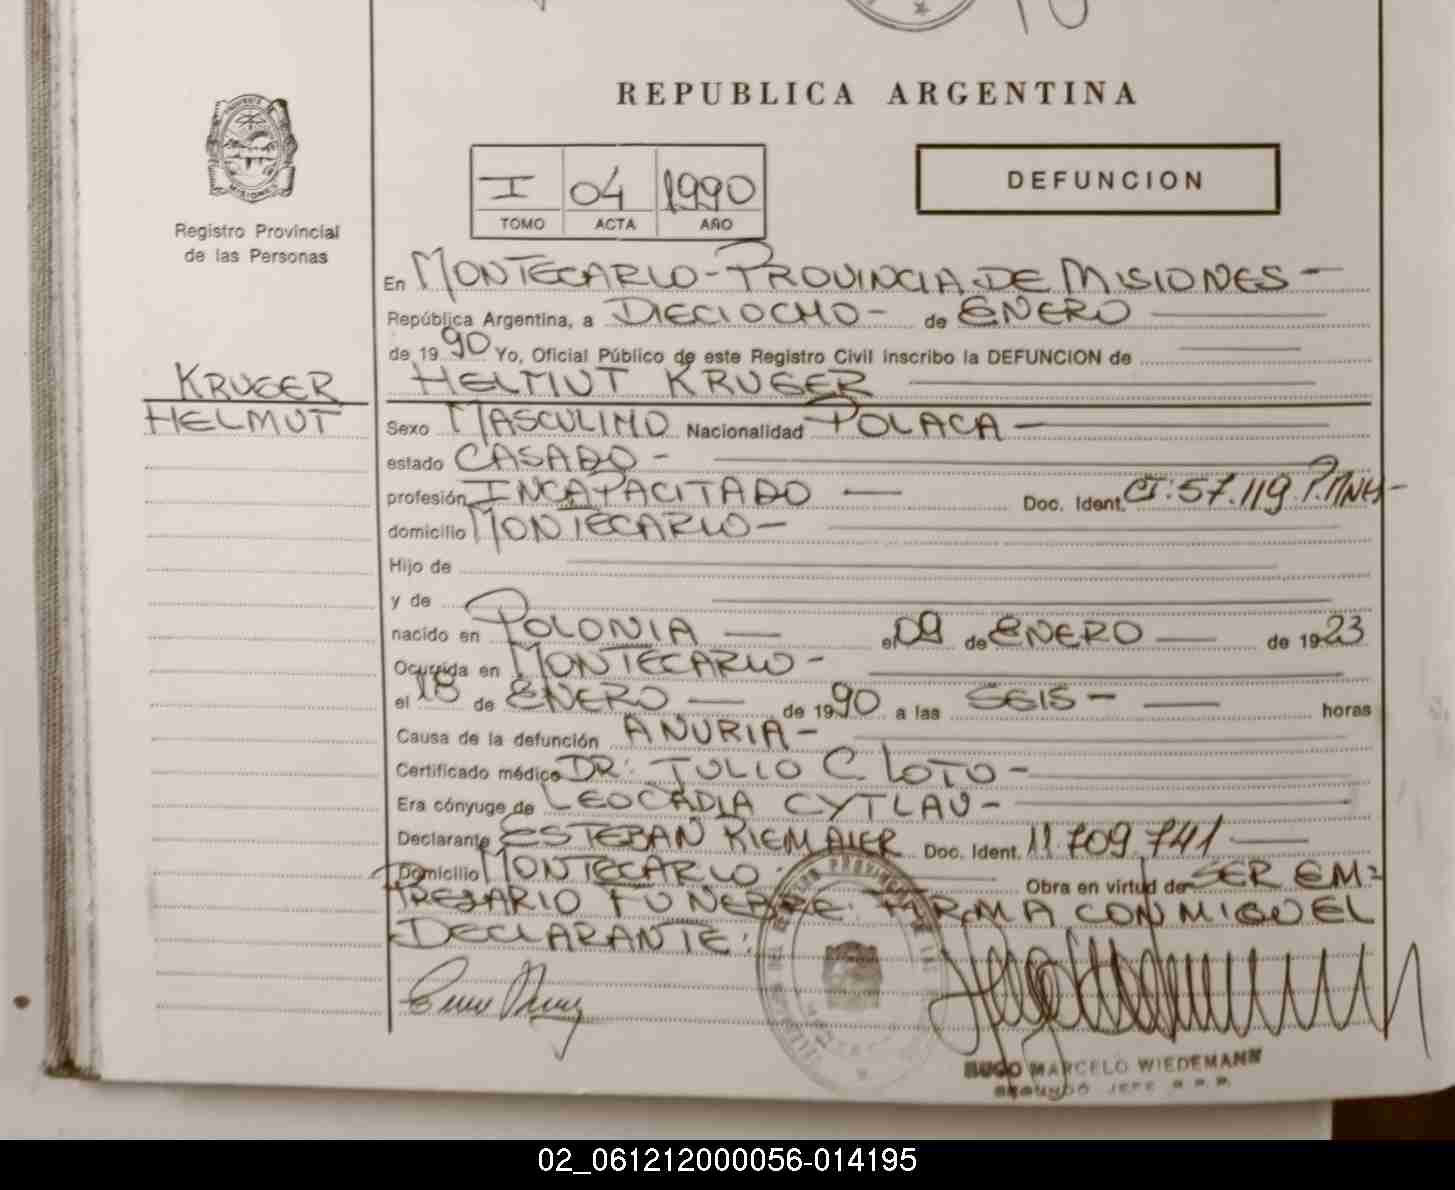 REPUBLICA ARGENTINA
MISIONES
Registro Provincial
de las Personas
I 04 1990
TOMO ACTA AÑO
DEFUNCION
En MONTECARLO - PROVINCIA DE MISIONES -
República Argentina, a DIECIOCHO - de ENERO
de 1990 Yo, Oficial Público de este Registro Civil inscribo la DEFUNCION de
KRUGER
HELMUT
HELMUT KRUGER
Sexo MASCULINO Nacionalidad POLACA -
estado CASADO -
profesión INCAPACITADO — Doc. Ident. CI: 57.119 P.MNES-
domicilio MONTECARLO -
Hijo de
y de
nacido en POLONIA — el 09 de ENERO — de 1923
Ocurrida en MONTECARLO -
el 18 de ENERO — de 1990 a las SEIS - — horas
Causa de la defunción ANURIA -
Certificado médico DR: JULIO C. LOTO -
Era cónyuge de LEOCADIA CYTLAU -
Declarante ESTEBAN RIEMAIER Doc. Ident. 11.709.741 —
Domicilio MONTECARLO. Obra en virtud de SER EM=
PRESARIO FUNEBRE. FIRMA CONMIGO EL
DECLARANTE:
HUGO MARCELO WIEDEMANN
SEGUNDO JEFE R.P.P.
02_061212000056-014195